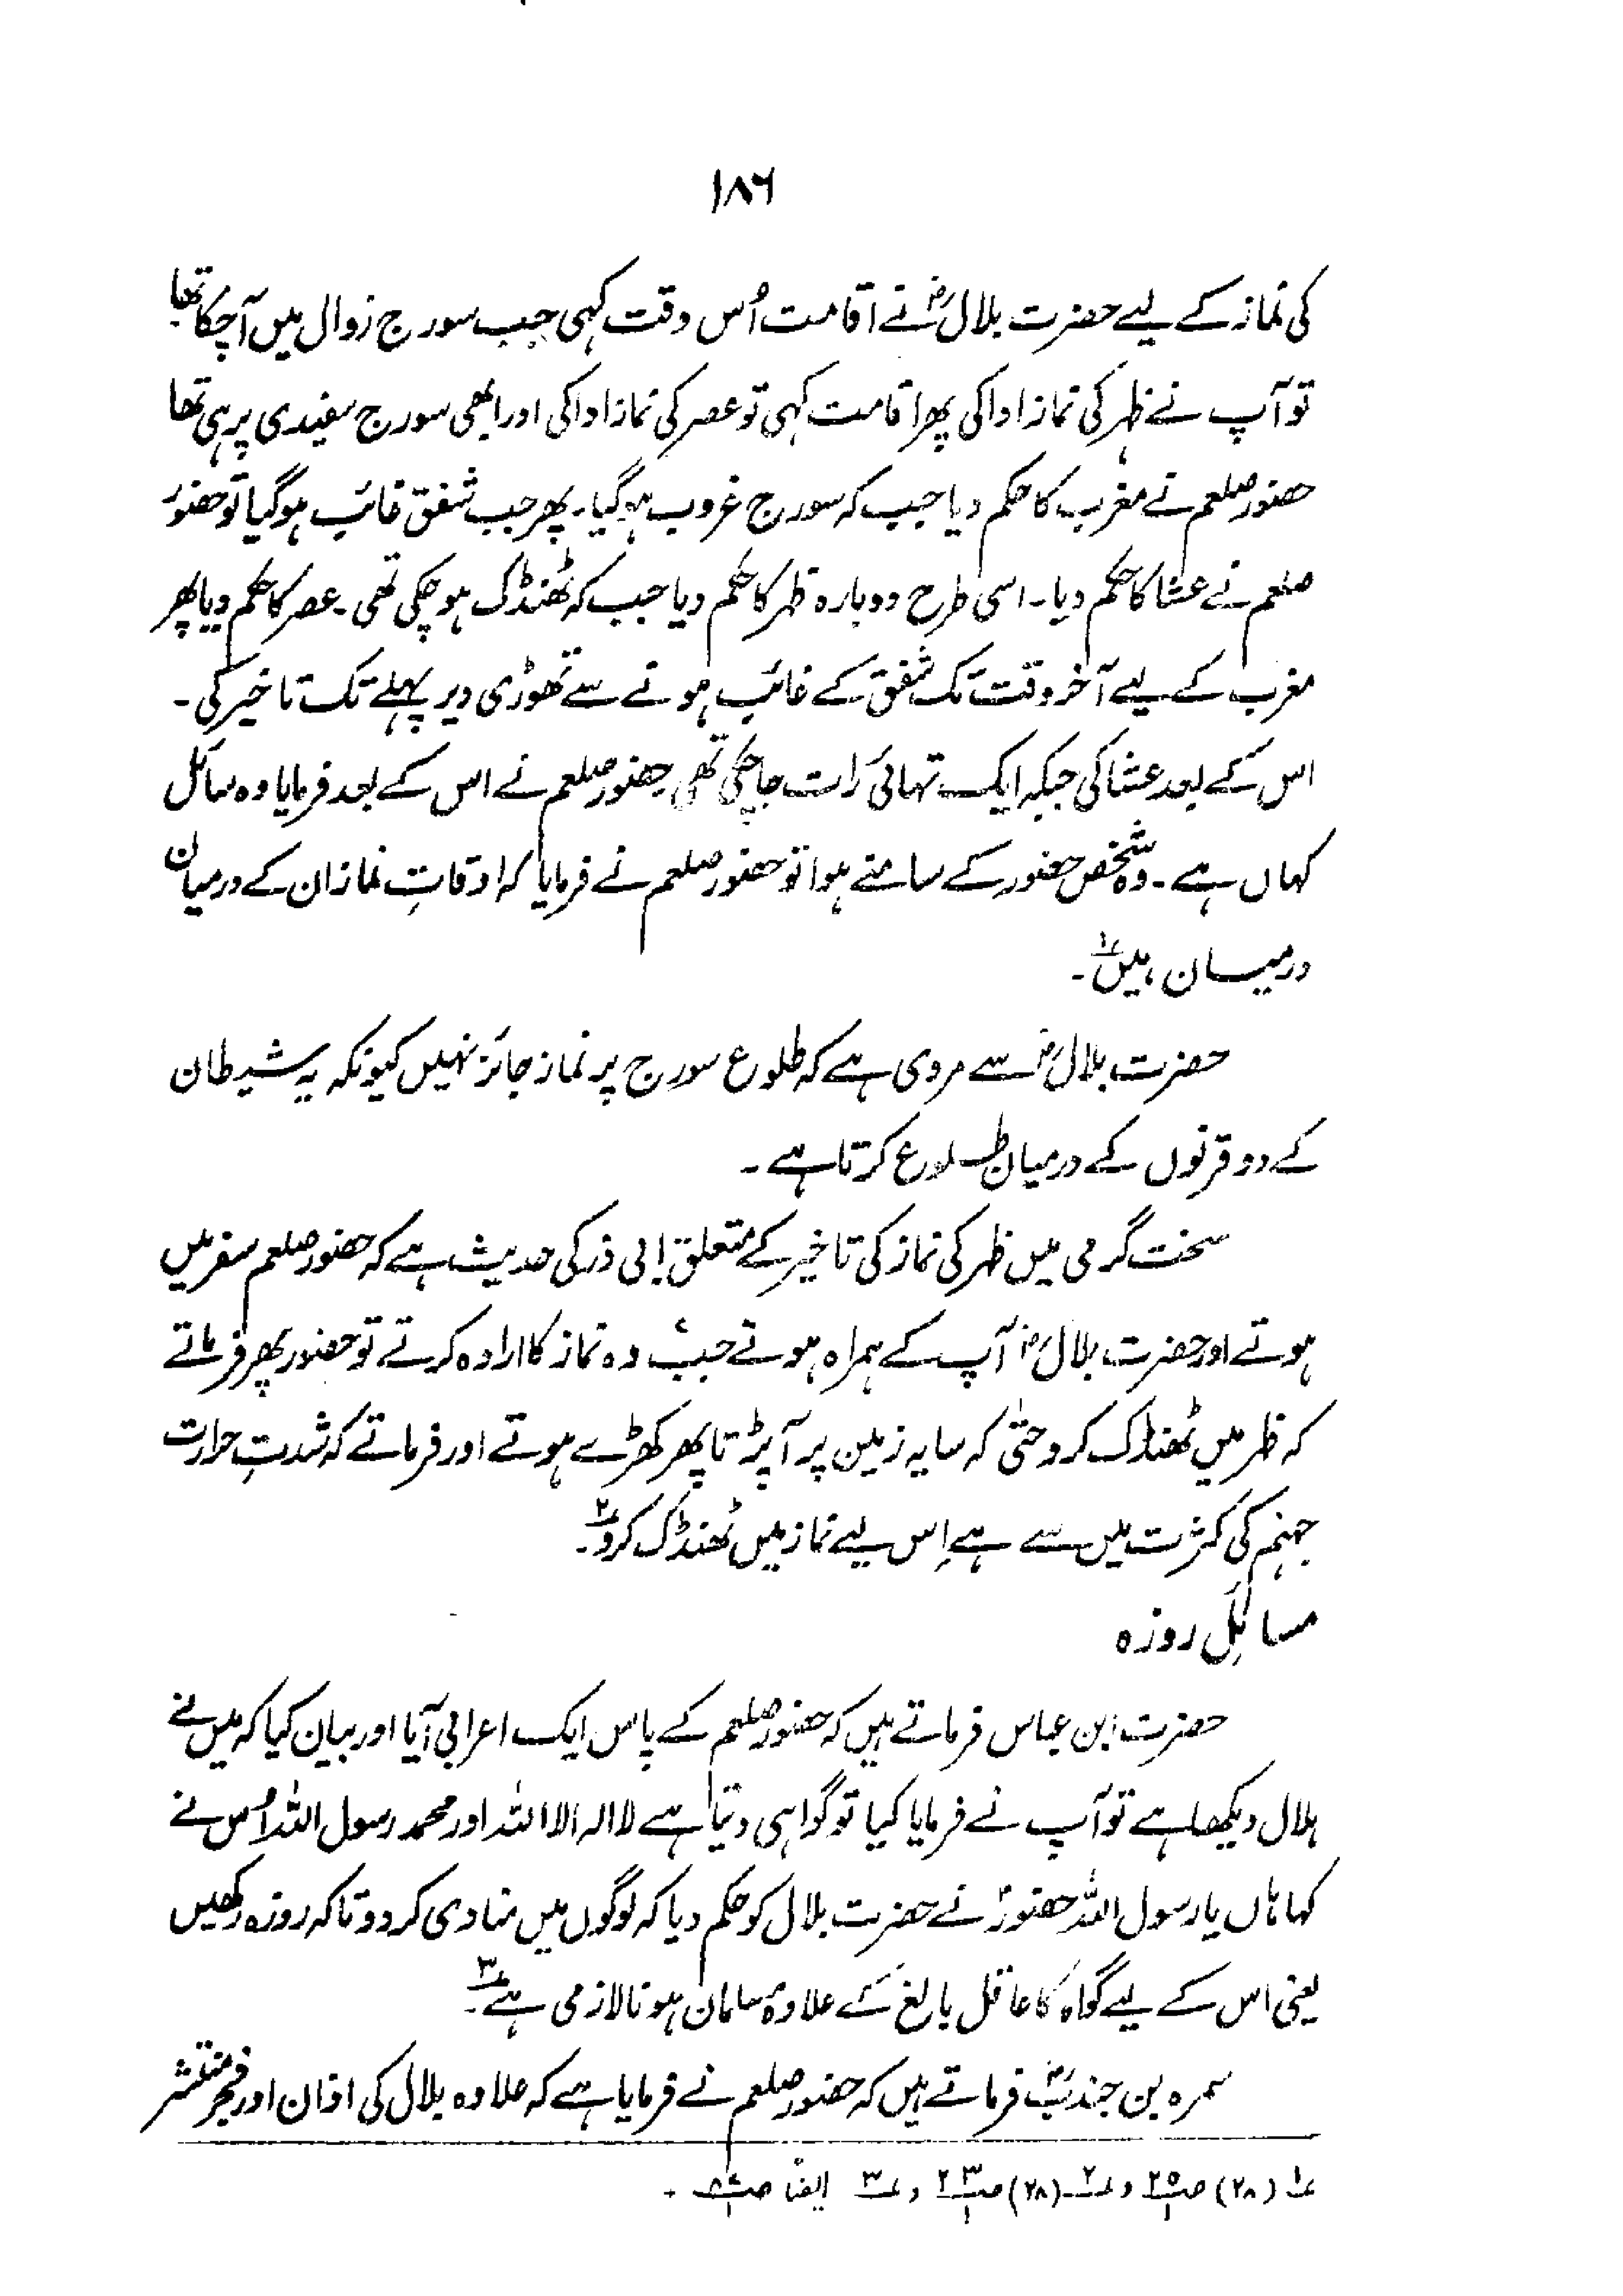 ۱۸۶
کی نماز کے لیے حضرت بلالؓ نے اقامت اُس وقت کہی جب سورج زوال میں آچکا تھا
تو آپ نے ظہر کی نماز ادا کی پھر اقامت کہی تو عصر کی نماز ادا کی اور ابھی سورج سفیدی پر ہی تھا
حضور صلعم نے مغرب کا حکم دیا جب کہ سورج غروب ہوگیا۔ پھر جب شفق غائب ہوگیا تو حضور
صلعم نے عشا کا حکم دیا۔ اسی طرح دوبارہ ظہر کا حکم دیا جب کہ ٹھنڈک ہوچکی تھی۔ عصر کا حکم دیا پھر
مغرب کے لیے آخر وقت تک شفق کے غائب ہونے سے تھوڑی دیر پہلے تک تاخیر کی۔
اس کے بعد عشا کی جبکہ ایک تہائی رات جاچکی تھی حضور صلعم نے اس کے بعد فرمایا وہ سائل
کہاں ہے۔ وہ شخص حضور کے سامنے ہوا تو حضور صلعم نے فرمایا کہ اوقاتِ نماز ان کے درمیان
درمیان ہیں۱۔
حضرت بلالؓ سے مروی ہے کہ طلوع سورج پر نماز جائز نہیں کیونکہ یہ شیطان
کے دو قرنوں کے درمیان طلوع کرتا ہے۔
سخت گرمی میں ظہر کی نماز کی تاخیر کے متعلق ابی ذر کی حدیث ہے کہ حضور صلعم سفر میں
ہوتے اور حضرت بلالؓ آپ کے ہمراہ ہوتے جب وہ نماز کا ارادہ کرتے تو حضور پھر فرماتے
کہ ظہر میں ٹھنڈک کرو حتیٰ کہ سایہ زمین پر آپڑتا پھر کھڑے ہوتے اور فرماتے کہ شدتِ حرارت
جہنم کی کثرت میں سے ہے اِس لیے نماز میں ٹھنڈک کرو۲۔
مسائلِ روزہ
حضرت ابن عباس فرماتے ہیں کہ حضور صلعم کے پاس ایک اعرابی آیا اور بیان کیا کہ میں نے
ہلال دیکھا ہے تو آپ نے فرمایا کیا تو گواہی دیتا ہے لا الہ الا اللہ اور محمد رسول اللہ اُس نے
کہا ہاں یا رسول اللہ حضورؐ نے حضرت بلال کو حکم دیا کہ لوگوں میں منادی کردو تاکہ روزہ رکھیں
یعنی اس کے لیے گواہ کا عاقل بالغ کے علاوہ مسلمان ہونا لازمی ہے۳۔
سمرہ بن جندبؓ فرماتے ہیں کہ حضور صلعم نے فرمایا ہے کہ علاوہ بلال کی اذان اور فجر منتشر
۱ (۲۸) ص ۲۵ و ۲ (۲۸) ص ۲۳ و ۳ ایضاً ص